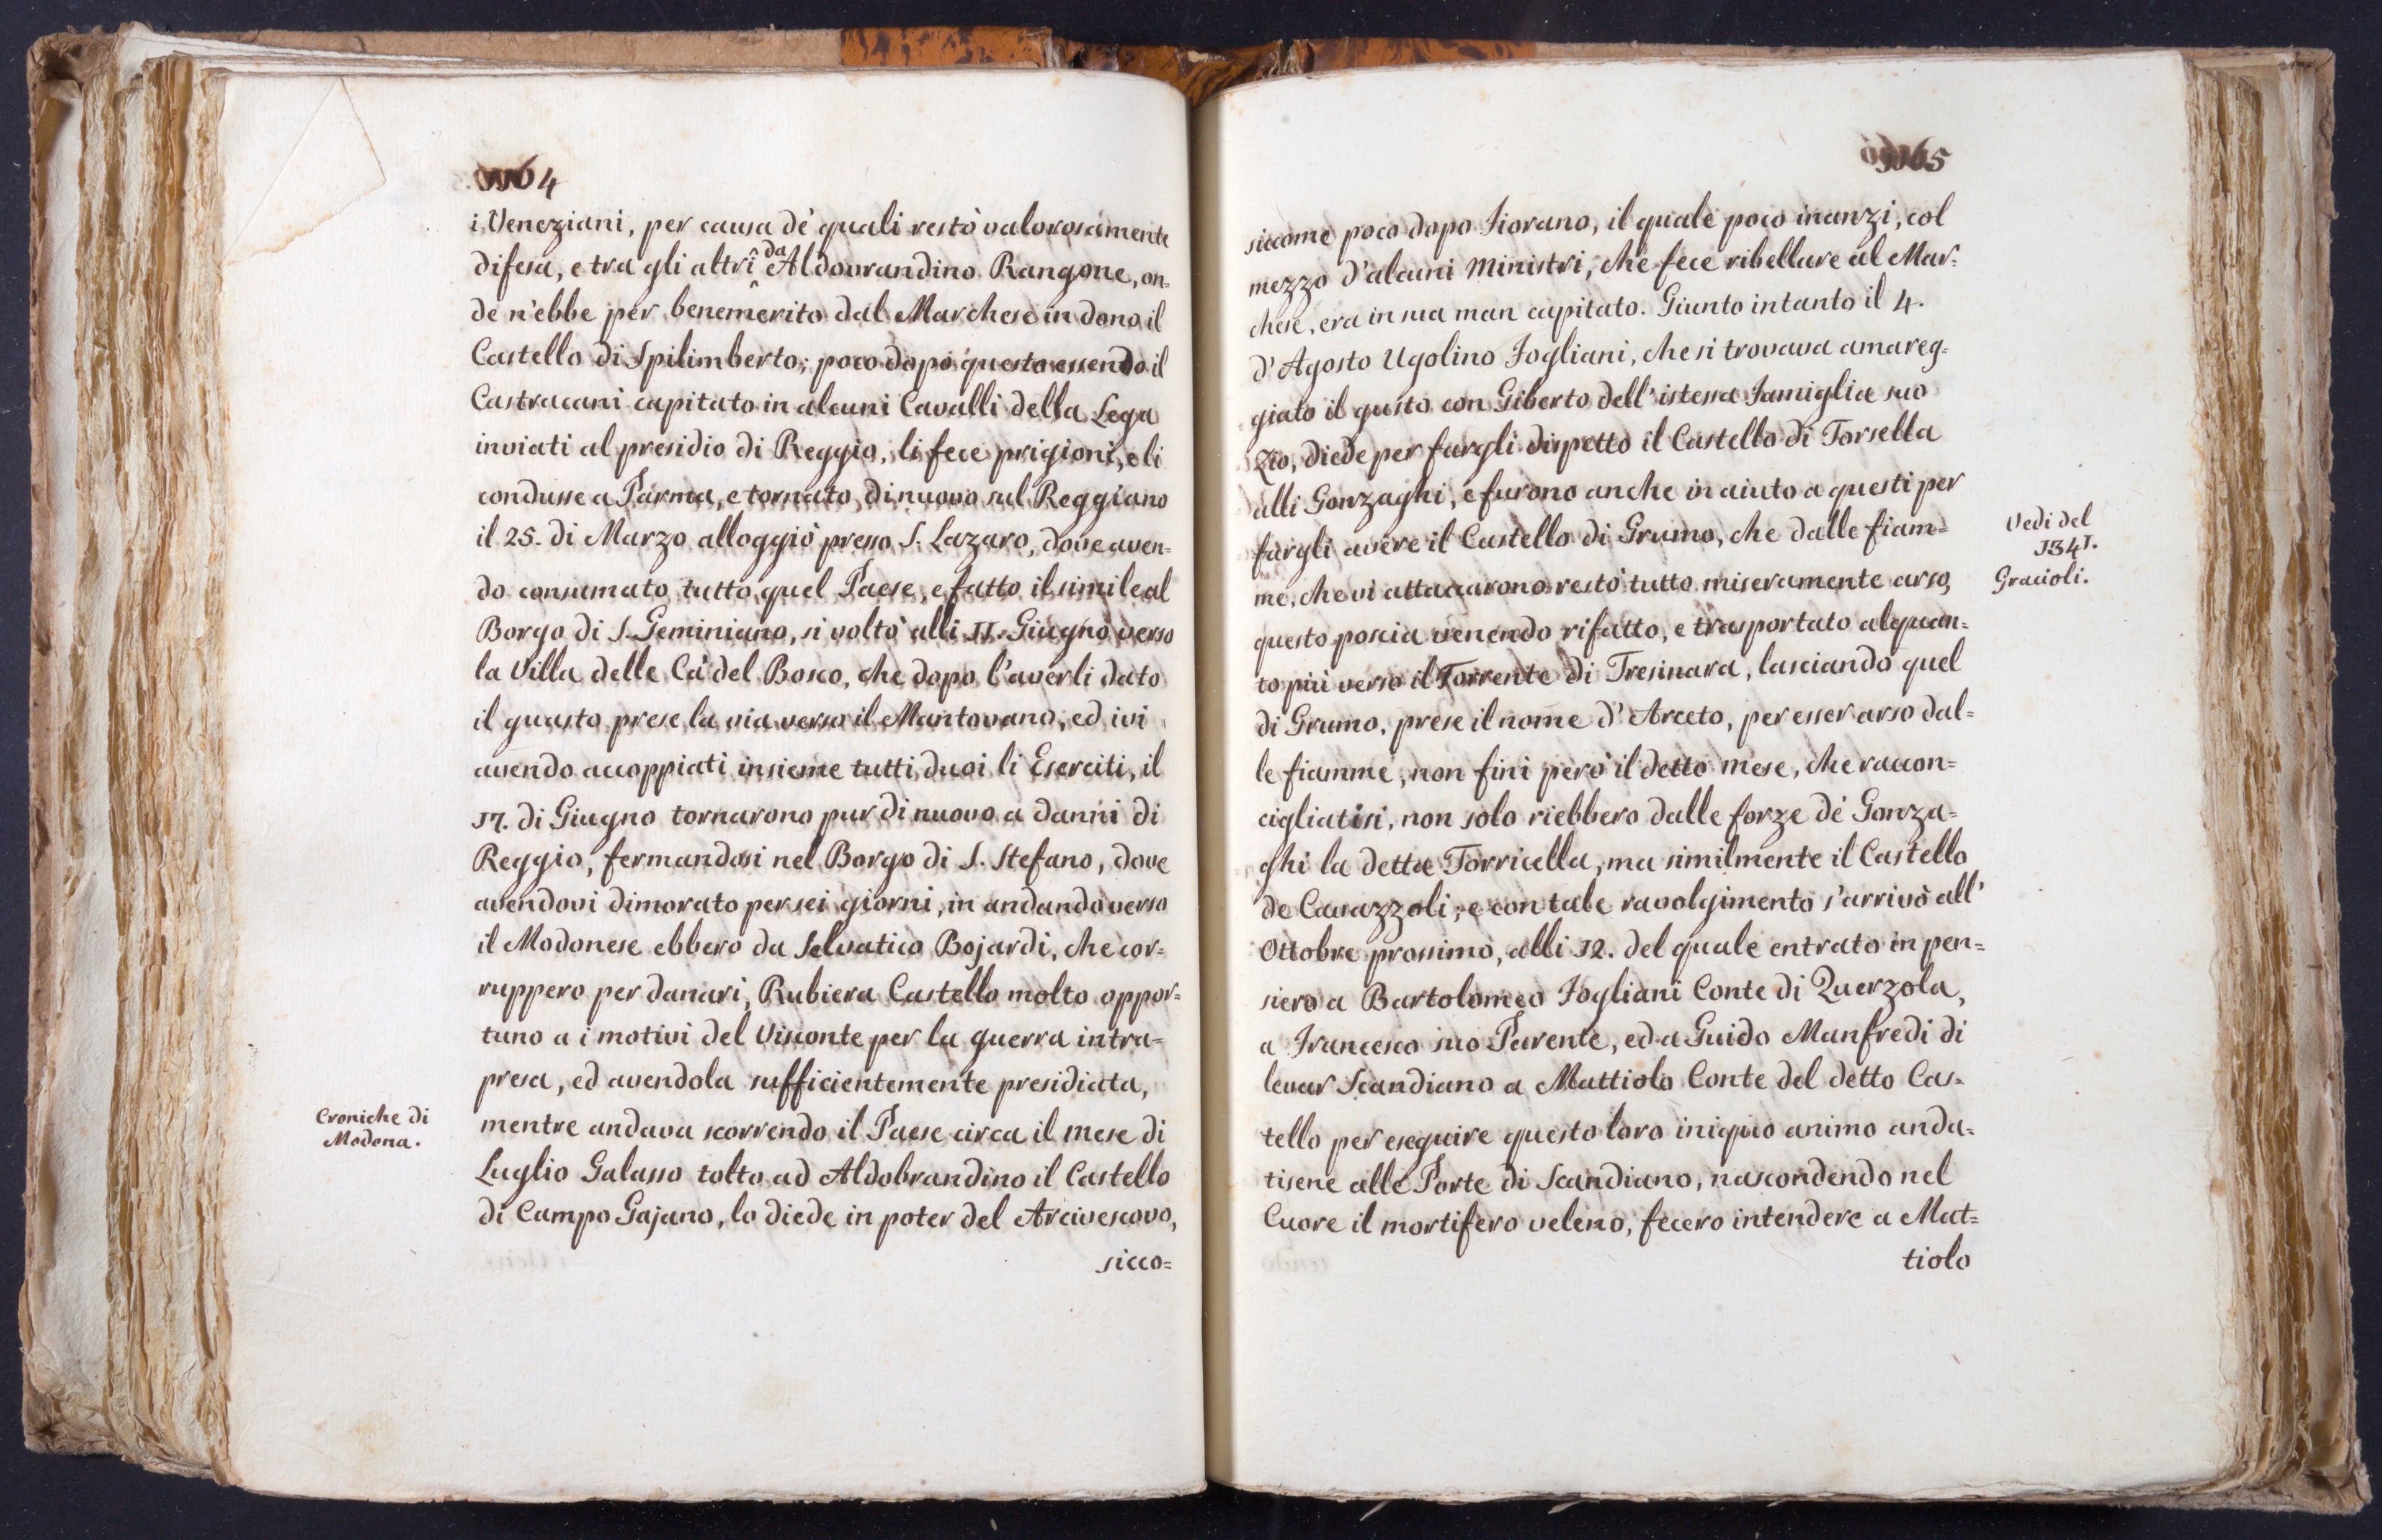 1164
i Veneziani, per causa de' quali restò valorosamente
difesa, e tra gli altri da Aldovrandino Rangone, on=
de n'ebbe per benemerito dal Marchese in dono il
Castello di Spilimberto; poco dopo questo essendo il
Castracani capitato in alcuni Cavalli della Lega
inviati al presidio di Reggio, li fece prigioni, e li
condusse a Parma, e tornato di nuovo sul Reggiano
il 25. di Marzo alloggiò presso S. Lazaro, dove aven=
do consumato tutto quel Paese, e fatto il simile al
Borgo di S. Geminiano, si voltò alli 11. Giugno verso
la Villa delle Cà del Bosco, che dopo l'averli dato
il guasto prese la via verso il Mantovano, ed ivi
avendo accoppiati insieme tutti duoi li Eserciti, il
17. di Giugno tornarono pur di nuovo a danni di
Reggio, fermandosi nel Borgo di S. Stefano, dove
avendovi dimorato per sei giorni, in andando verso
il Modonese ebbero da Selvatico Bojardi, che cor=
ruppero per danari, Rubiera Castello molto oppor=
tuno a i motivi del Visconte per la guerra intra=
presa, ed avendola sufficientemente presidiata,
Croniche di
Modona.
mentre andava scorrendo il Paese circa il mese di
Luglio Galasso tolto ad Aldobrandino il Castello
di Campo Gajano, lo diede in poter del Arcivescovo,
sicco=
1165
siccome poco dopo Fiorano, il quale poco inanzi, col
mezzo d'alcuni Ministri, che fece ribellare al Mar=
chese, era in sua man capitato. Giunto intanto il 4.
d'Agosto Ugolino Fogliani, che si trovava amareg=
giato il gusto con Giberto dell'istessa Famiglia suo
Zio, diede per fargli dispetto il Castello di Torsella
alli Gonzaghi, e furono anche in aiuto a questi per
fargli avere il Castello di Grumo, che dalle fiam=
me, che vi attaccarono restò tutto miseramente arso,
Vedi del
1341.
Gracioli.
questo poscia venendo rifatto, e trasportato alquan=
to più verso il Torrente di Tresinara, lasciando quel
di Grumo, prese il nome d'Arceto, per esser arso dal=
le fiamme, non finì però il detto mese, che raccon=
cigliatisi, non solo riebbero dalle forze de' Gonza=
ghi la detta Torricella, ma similmente il Castello
de Cavazzoli; e con tale ravolgimento s'arrivò all'
Ottobre prossimo, alli 12. del quale entrato in pen=
siero a Bartolomeo Fogliani Conte di Querzola,
a Francesco suo Parente, ed a Guido Manfredi di
levar Scandiano a Mattiolo Conte del detto Cas=
tello per eseguire questo loro iniquo animo anda=
tisene alle Porte di Scandiano, nascondendo nel
Cuore il mortifero veleno, fecero intendere a Mat=
tiolo